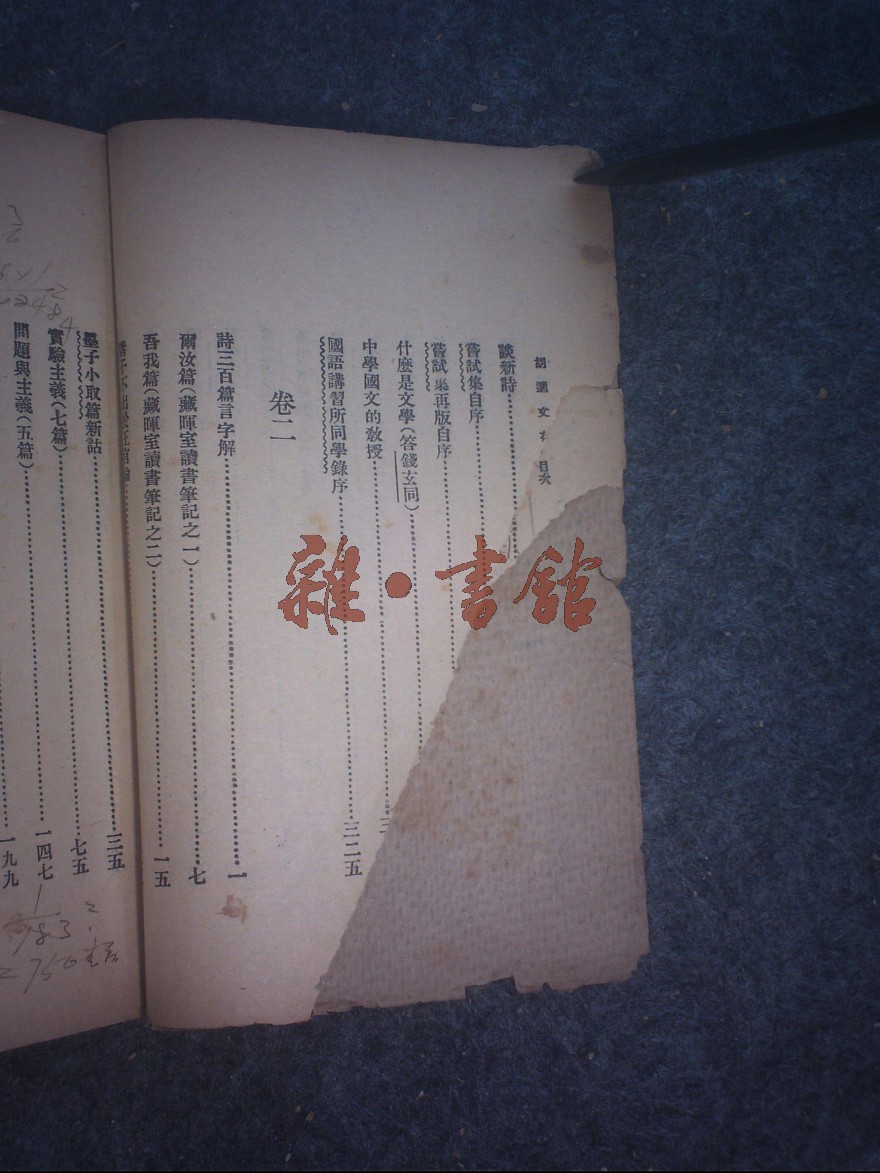 胡適文存 目次
談新詩
嘗試集自序
嘗試集再版自序
什麼是文學(答錢玄同)
中學國文的教授
國語講習所同學錄序 三二五
卷二
詩三百篇言字解 一
爾汝篇(藏暉室讀書筆記之一) 七
吾我篇(藏暉室讀書筆記之二) 一五
三五
墨子小取篇新詁 七五
實驗主義(七篇) 一四七
問題與主義(五篇) 一九九
雜·書館